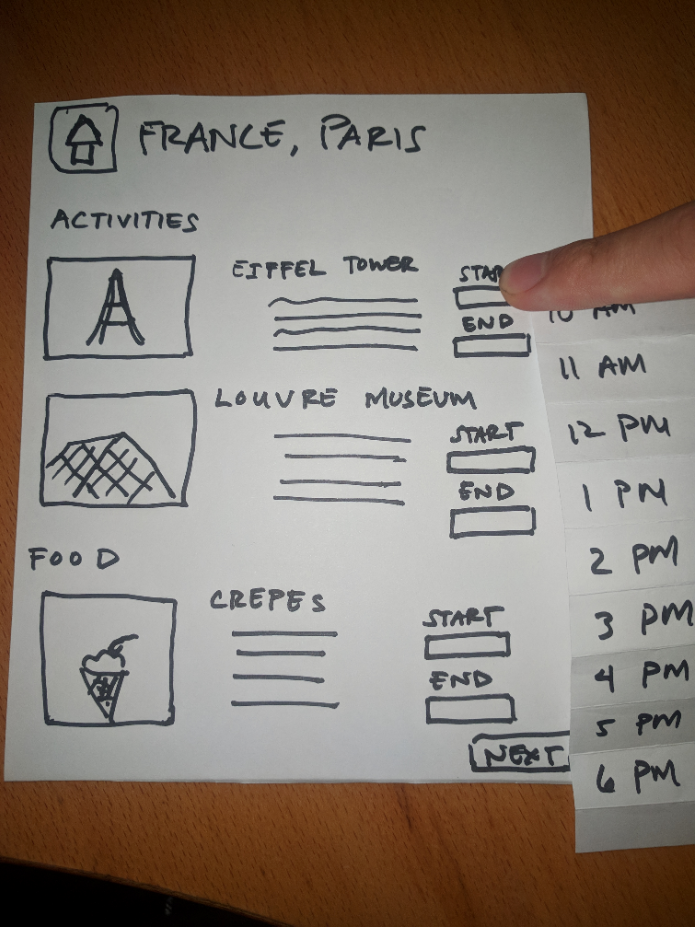 FRANCE, PARIS
ACTIVITIES
EIFFEL TOWER
START
END
LOUVRE MUSEUM
START
END
FOOD
CREPES
START
END
NEXT
10 AM
11 AM
12 PM
1 PM
2 PM
3 PM
4 PM
5 PM
6 PM